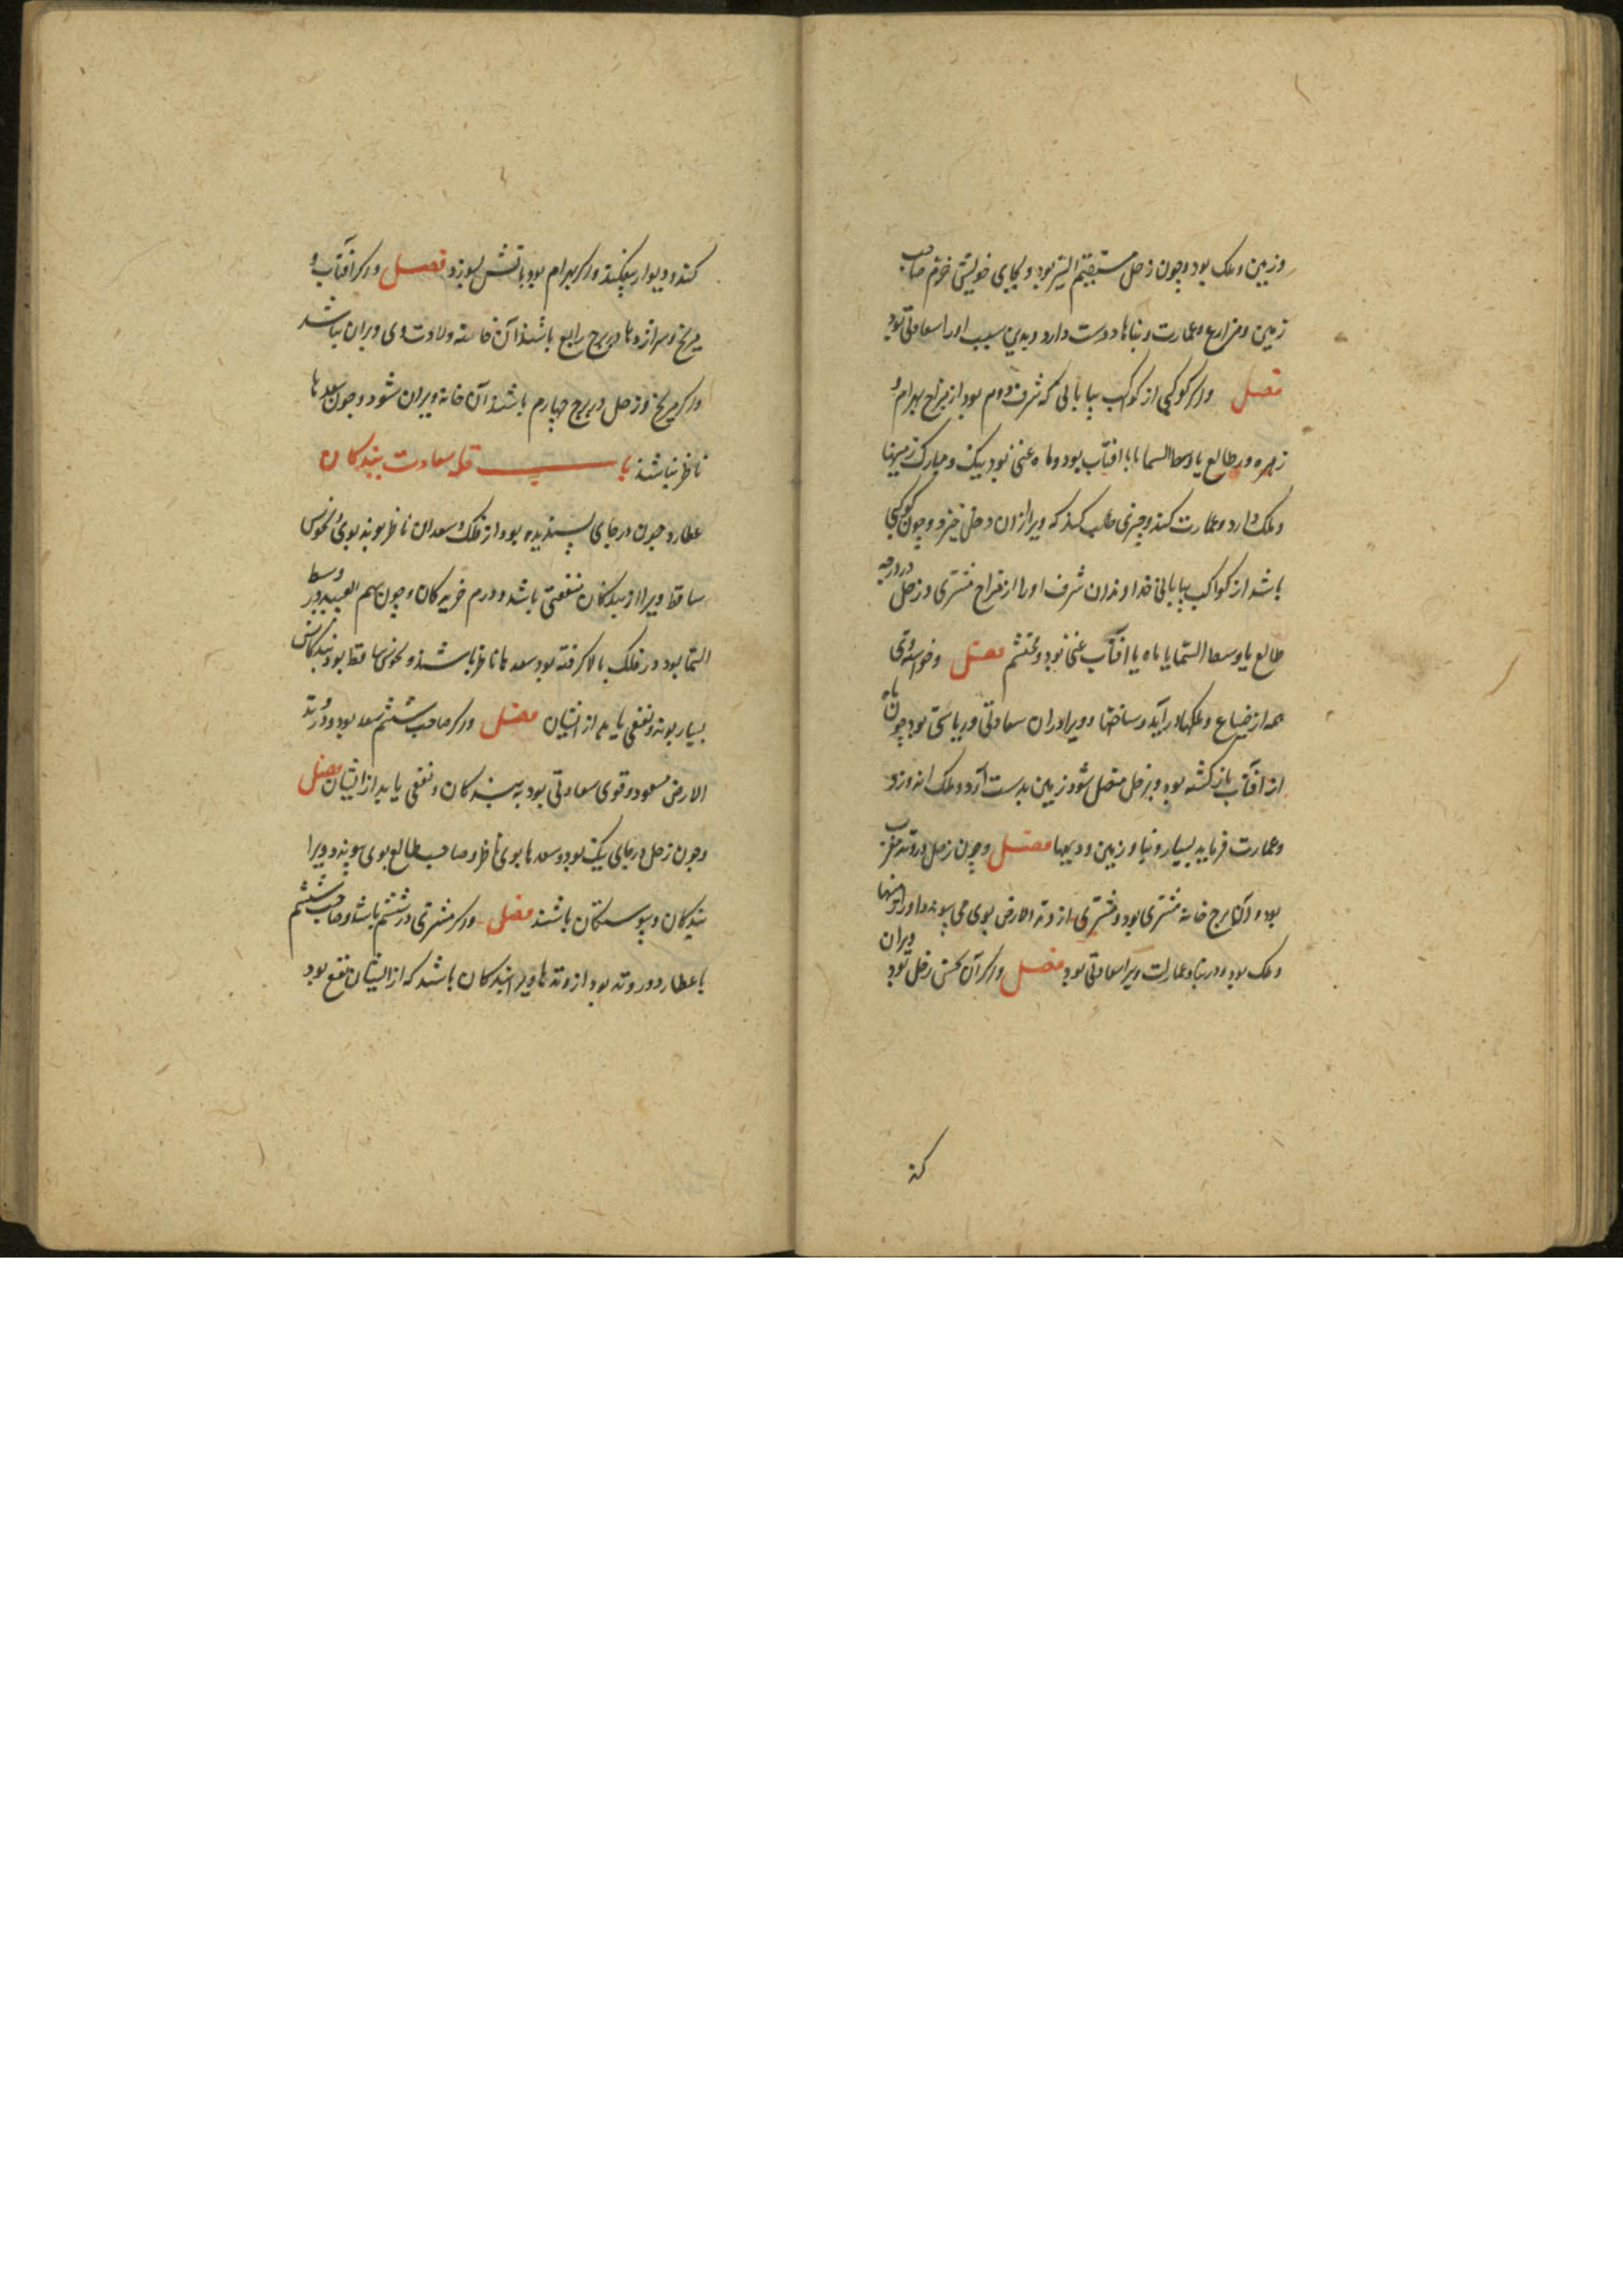 وزمین و ملک بود و چون زحل مستقیم السیر بود و بجای خویش خرم صاحب
زمین و مزارع و عمارت و بناها دوست دارد و بدین سبب او را سعادتی بود
فصل واگر کوکبی از کواکب بیابانی که شرف دوم بود از مزاج بهرام و
زهره در طالع یا وسط السما با افتاب بود و ماه غنی بود نیک و مبارک زمینها
و ملک دارد و عمارت کند و چیزی طلب کند که ویرا از ان دخل خیزد و چون کوکبی
باشد از کواکب بیابانی خداوندان شرف او را از مزاج مشتری و زحل در درجه
طالع یا وسط السما یا ماه یا افتاب غنی بود و محتشم فصل وخواسته وی
همه از ضیاع و ملکها در آید و ساختها و ویرا در ان سعادتی و ریاستی بود چون ماه
از افتاب بازگشته بود و بزحل متصل شود زمین بدست آرد و ملک اندوزد
وعمارت فرماید بسیار و بنا و زمین و دیهها فصل وچون زحل در وتد مغرب
بود و آن برج خانه مشتری بود و مشتری از وتد الارض بوی می پیوندد او را زمینها
و ملک بود و در بنا و عمارت ویرا سعادتی بود فصل واگر آن نحس زحل بود ویران
کند
کند و دیوار بیفکند واگر بهرام بود باتش بسوزد فصل واگر افتاب و
مریخ و سر اژدها در برج رابع باشند آن خانه ولادت وی ویران باشد
واگر مریخ و زحل در برج چهارم باشند آن خانه ویران شود و چون سعدها
ناظر نباشند باب فی سعادت بندکان
عطارد چون در جای پسندیده بود از فلک و سعدان ناظر بوند بوی و نحوس
ساقط ویرا از بندکان منفعتی باشد و درم خریدکان و چون سهم العبید در وسط
السما بود و در فلک بالا کرفته بود سعدها ناظر باشند و نحوس ساقط بود بندکانش
بسیار بوند و نفعی یابد از ایشان فصل واگر صاحب ششم سعد بود و در وتد
الارض مسعود و قوی سعادتی بود به بندکان و نفعی یابد از ایشان فصل
وچون زحل در جای نیک بود و سعدها بوی ناظر و صاحب طالع بوی پیوندد ویرا
بندکان و پیوستکان باشند فصل واگر مشتری در ششم باشد و صاحب ششم
با عطارد در وتد بود از وتدها ویرا بندکان باشند که از ایشان نفع بود